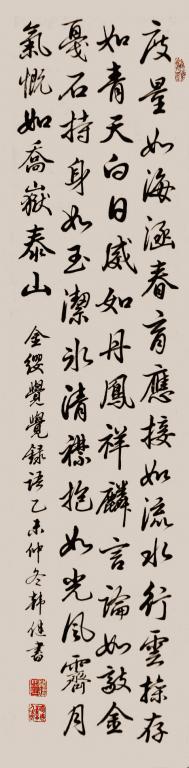 度量如海涵春育應接如流水行雲操存
如青天白日威如丹鳳祥麟言論如敲金
戛石持身如玉潔冰清襟抱如光風霽月
氣慨如喬嶽泰山
金纓覺覺錄語乙未仲冬韓健書